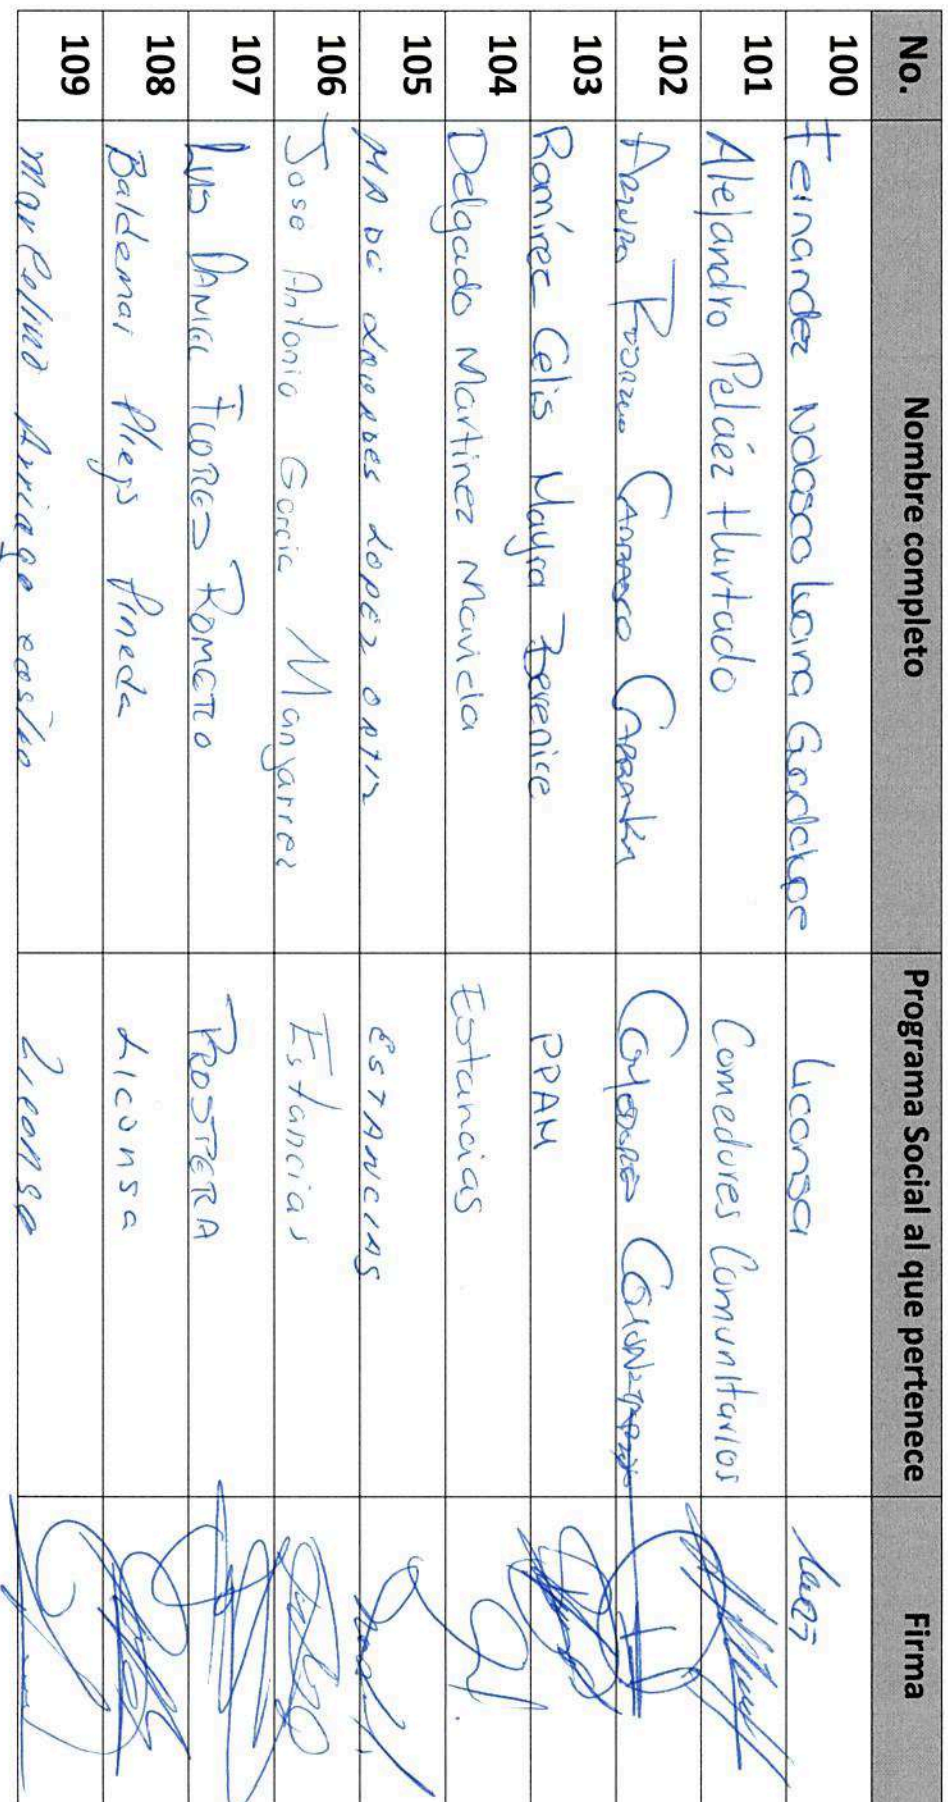 No. Nombre completo Programa Social al que pertenece Firma
100 Fernandez Nolasco Lucina Guadalupe Liconsa
101 Alejandro Peláez Hurtado Comedores Comunitarios
102 Carrasco Comedores Comunitarios
103 Ramírez Celis Mayra Berenice PPAM
104 Delgado Martinez Maricela Estancias
105 MA DE LOURDES LOPEZ ORTIZ ESTANCIAS
106 Jose Antonio Garcia Manjarrez Estancias
107 Luis DANIEL FLORES ROMERO PROSPERA
108 Baldemar Pliego Pineda Liconsa
109 Marcelino Arriaga castro Liconsa